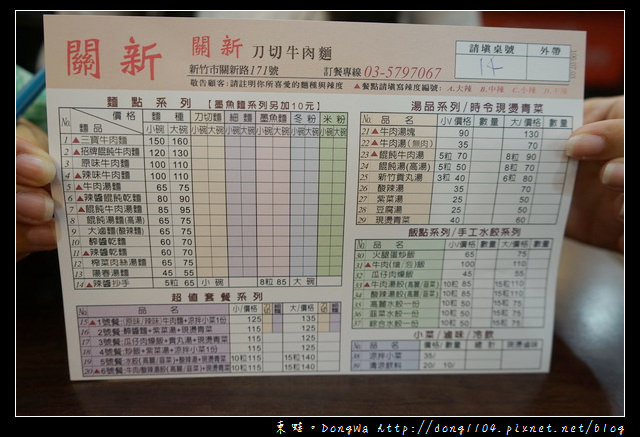 關新 關新 刀切牛肉麵
新竹市關新路171號 訂餐專線 03-5797067
敬告顧客:請註明你所喜愛的麵種與辣度 ▲餐點請填寫辣度編號:A.大辣 B.中辣 C.小辣
請填桌號 外帶
14
麵點系列/【墨魚麵系列另加10元】
No. 價格 麵品 麵種 刀切麵 細麵 墨魚麵 冬粉 米粉
小碗 大碗 小碗 大碗 小碗 大碗 小碗 大碗 小碗 大碗 小碗 大碗
1 ▲三寶牛肉麵 150 160
2 ▲招牌餛飩牛肉麵 120 130
3 原味牛肉麵 100 110
4 ▲辣味牛肉麵 100 110
5 ▲牛肉湯麵 65 75
6 ▲辣醬餛飩乾麵 80 90
7 ▲餛飩牛肉湯麵 85 95
8 餛飩湯麵(高湯) 65 75
9 大滷麵(酸辣麵) 65 75
10 醡醬乾麵 60 70
11 ▲辣醬乾麵 60 70
12 榨菜肉絲湯麵 65 75
13 陽春湯麵 45 55
14 ▲辣醬抄手 5粒 65 小碗 8粒 85 大碗
超值套餐系列
No. 品名 小/價格 大/價格
15 ▲1號餐:(原味/辣味)牛肉麵+涼拌小菜1份 125 135
16 2號餐:醡醬麵+紫菜湯+現燙青菜 115 125
17 3號餐:瓜仔肉燥飯+貢丸湯+現燙青菜 115 125
18 4號餐:炒飯+紫菜湯+涼拌小菜1份 115 125
19 5號餐:水餃(高麗/韭菜)+酸辣湯+現燙青菜 10粒 115 15粒 140
20 ▲6號餐:牛肉/酸辣湯餃(高麗/韭菜)+現燙青菜 10粒 115 15粒 140
湯品系列/時令現燙青菜
No. 品名 小/價格 數量 大/價格 數量
21 ▲牛肉湯塊 90 130
22 ▲牛肉湯(無肉) 35 70
23 ▲餛飩牛肉湯 5粒 70 8粒 90
24 餛飩湯(高湯) 5粒 50 8粒 70
25 新竹貢丸湯 3粒 40 6粒 80
26 酸辣湯 35 70
27 紫菜湯 25 50
28 豆腐湯 25 50
29 現燙青菜 40 60
飯點系列/手工水餃系列
No. 品名 小/價格 數量 大/價格 數量
30 火腿蛋炒飯 65 75
31 ▲牛肉(燴/炒)飯 100 110
32 瓜仔肉燥飯 45 55
33 ▲牛肉湯餃(高麗/韭菜) 10粒 85 15粒 110
34 酸辣湯餃(高麗/韭菜) 10粒 85 15粒 110
35 高麗水餃一份 10粒 50 15粒 75
36 韭菜水餃一份 10粒 50 15粒 75
37 綜合水餃一份 10粒 50 15粒 75
小菜/滷味/冷飲
No. 品名 價格/數量 總計 現燙滷味
38 涼拌小菜 35/
39 清涼飲料 20/ 10/
東蛙。DongWa http://dong1104.pixnet.net/blog